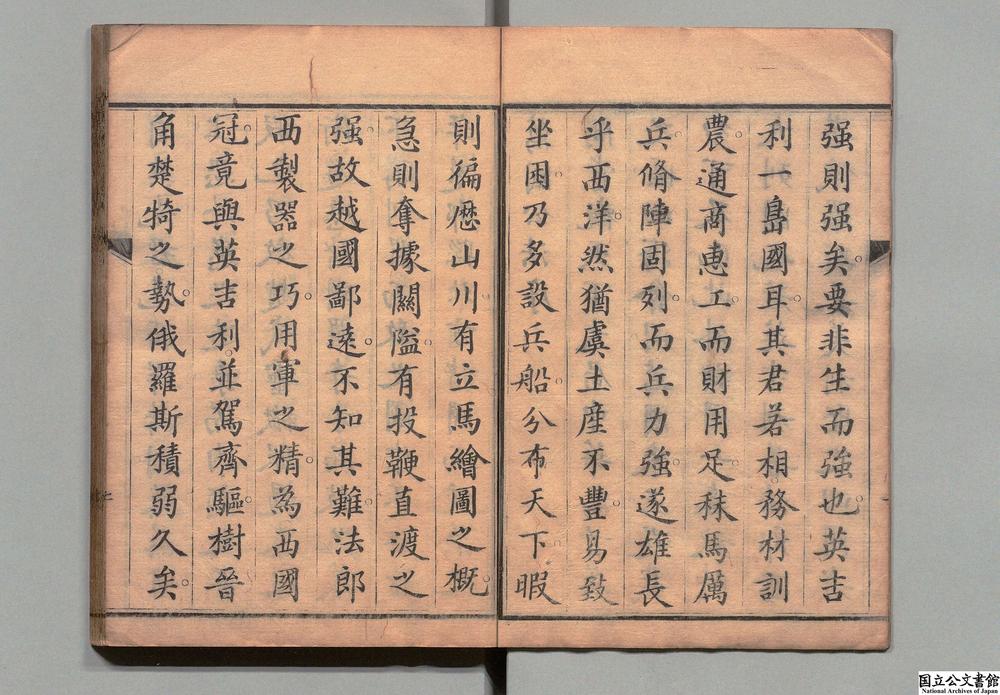 强則强矣。要非生而強也。英吉
利一島國耳。其君若相。務材訓
農。通商惠工。而財用足。秣馬厲
兵。脩陣固列。而兵力強。遂雄長
乎西洋。然猶虞土產不豐。易致
坐困。乃多設兵船。分布天下。暇
則徧歷山川。有立馬繪圖之概。
急則奪據關隘。有投鞭直渡之
强。故越國鄙遠。不知其難。法郎
西製器之巧。用軍之精。為西國
冠。竟與英吉利。並駕齊驅。樹晉
角楚犄之勢。俄羅斯積弱久矣。
国立公文書館
National Archives of Japan